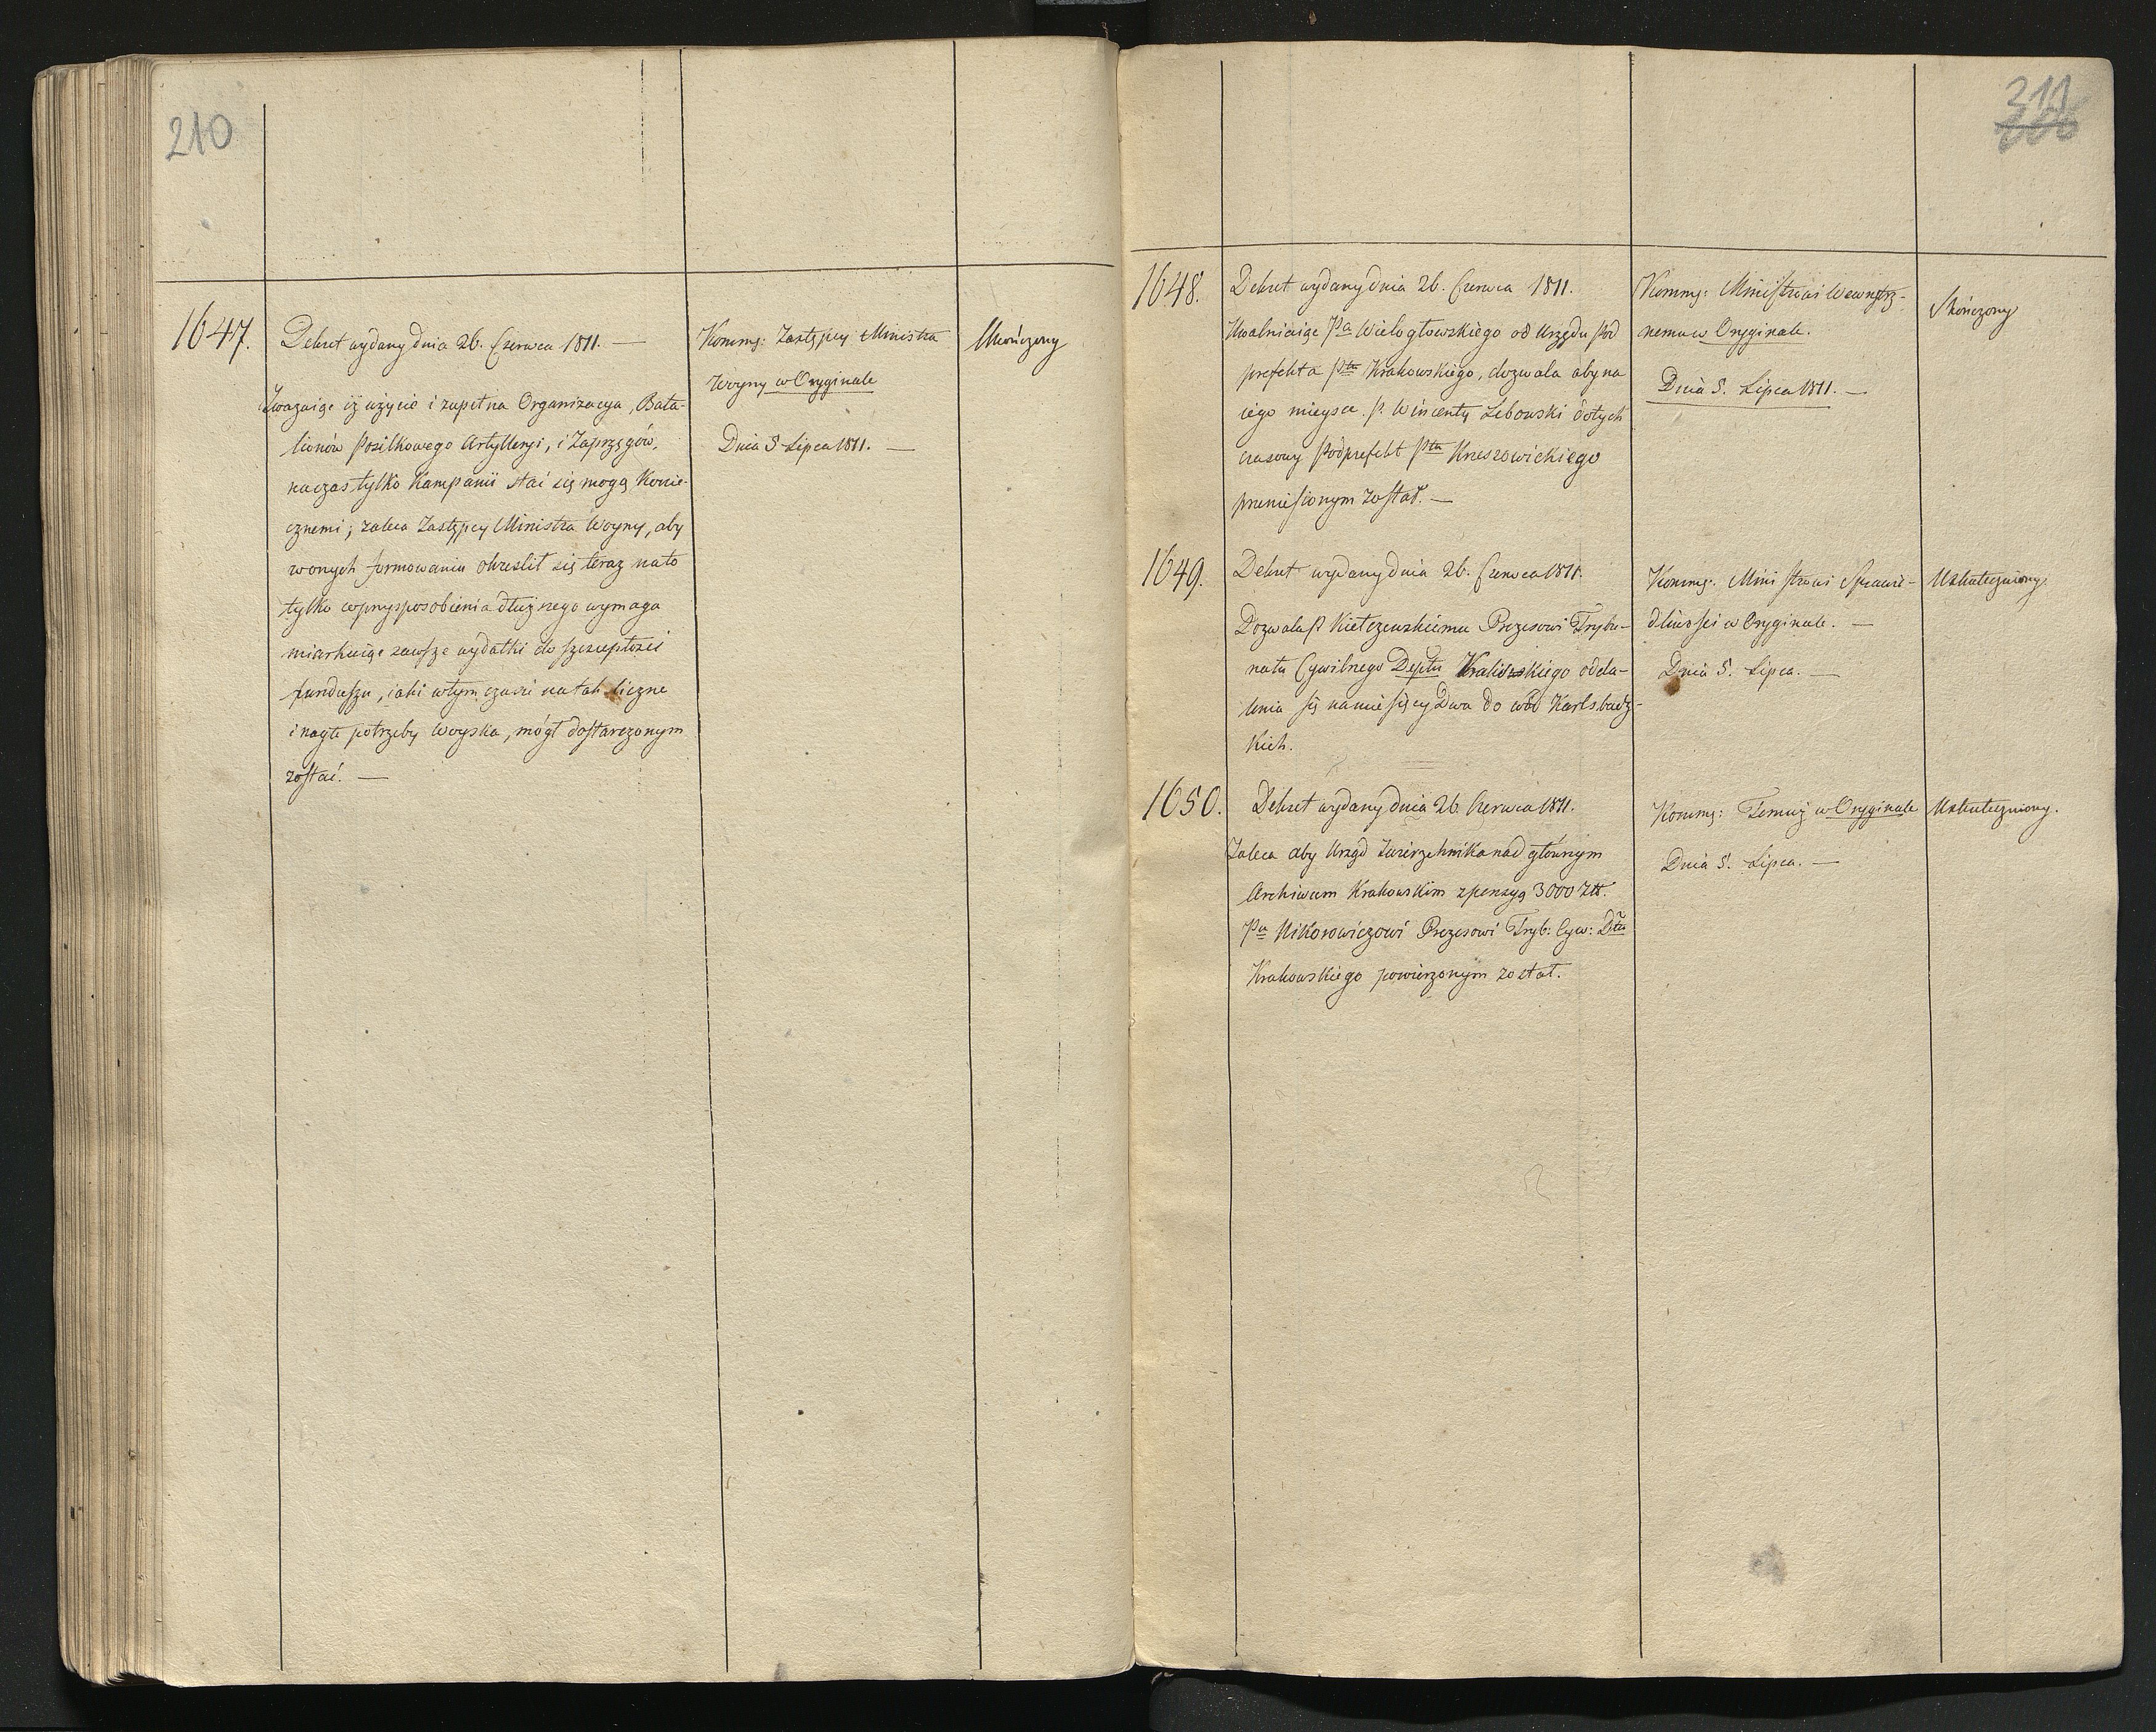 210
1647.
Dekret wydany dnia 26. Czerwca 1811. —
Zważaiąc iż użycie i zupełna Organizacya, Bata-
lionów Posiłkowego Artylleryi, i Zaprzęgów,
na czas tylko Kampanii stać się mogą Konie-
cznemi; zaleca Zastępcy Ministra Woyny, aby
w onych formowaniu okreslił się teraz na to
tylko co przysposobienia dłuższego wymaga
miarkuiąc zawsze wydatki do szczupłości
funduszu, iaki w tym czasie na tak liczne
i nagłe potrzeby woyska, mógł dostarczonym
zostać. —
Kommg: Zastępcy Ministra
Woyny w Oryginale
Dnia 5 Lipca 1811. —
Ukończony
211
206
1648.
Dekret wydany dnia 26. Czerwca 1811.
Uwalniaiąc Pa Wielogłowskiego od Urzędu Pod
prefekta Ptu Krakowskiego, dozwala aby na
iego mieysce P. Wincenty Lebowski dotych
czasowy Podprefekt Ptu Krzeszowickiego
przeniesionym został. —
Kommg: Ministrowi Wewnętrz-
nemu w Oryginale.
Dnia 5. Lipca 1811. —
Skończony
1649.
Dekret wydany dnia 26. Czerwca 1811.
Dozwala P Kiełczewskiemu Prezesowi Trybu-
nału Cywilnego Deptu Kaliskiego odda-
lenia się na miesięcy Dwa do wód Karlsbadz-
kich.
Kommg: Ministrowi Sprawie-
dliwości w Oryginale. —
Dnia 5. Lipca. —
Uskuteczniony.
1650.
Dekret wydany dnia 26. Czerwca 1811.
Zaleca aby Urząd Zwierzchnika nad głównym
Archiwum Krakowskim z pensyą 3000 Złł.
Pu Nikorowiczowi Prezesowi Tryb: Cyw: Dtu
Krakowskiego powierzonym został.
Kommg: Temuż w Oryginale
Dnia 5. Lipca. —
Uskuteczniony.